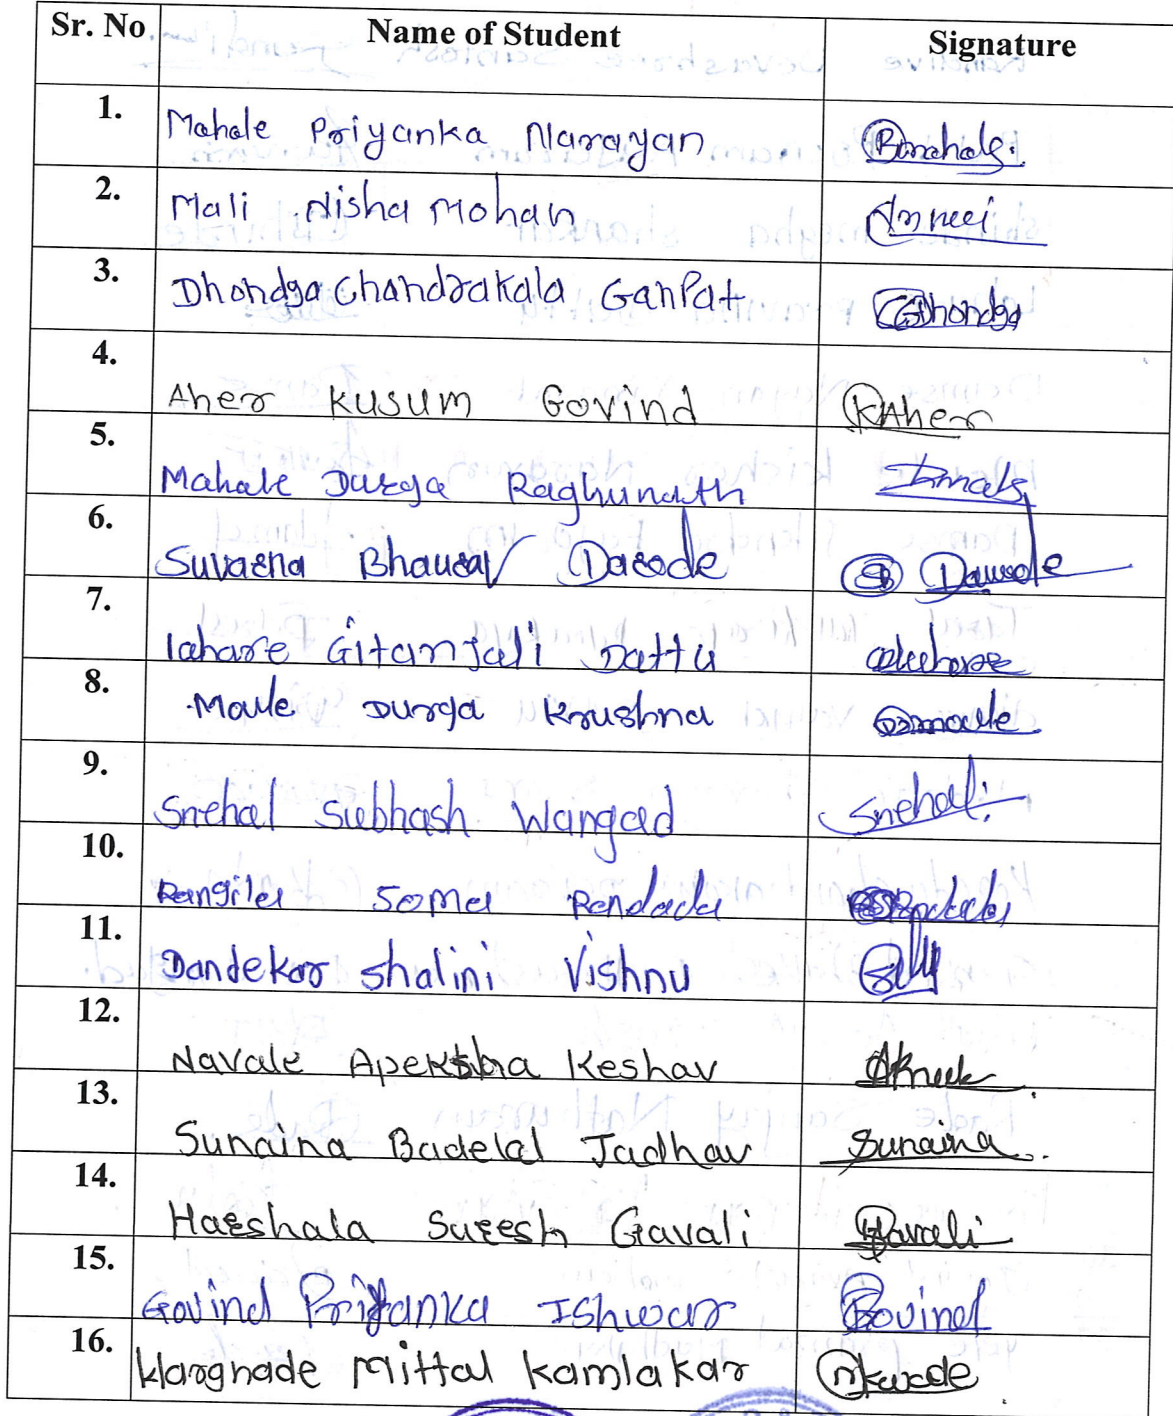 Sr. No Name of Student Signature
1. Mahale Priyanka Narayan
2. Mali Nisha Mohan
3. Dhondga Chandrakala GanPat Dhondga
4. Aher Kusum Govind KAher
5. Mahale Durga Raghunath
6. Suvarna Bhausav Darode
7. lahare Gitanjali Dattu
8. Moule Durga Krushna
9. Snehal Subhash Wangad Snehal
10. Rangila Soma Pandada
11. Dandekar Shalini Vishnu
12. Navale Apeksha Keshav
13. Sunaina Badelal Jadhav Sunaina
14. Harshala Suresh Gavali Gavali
15. Govind Priyanka Ishwar Govind
16. Mittal Kamlakar